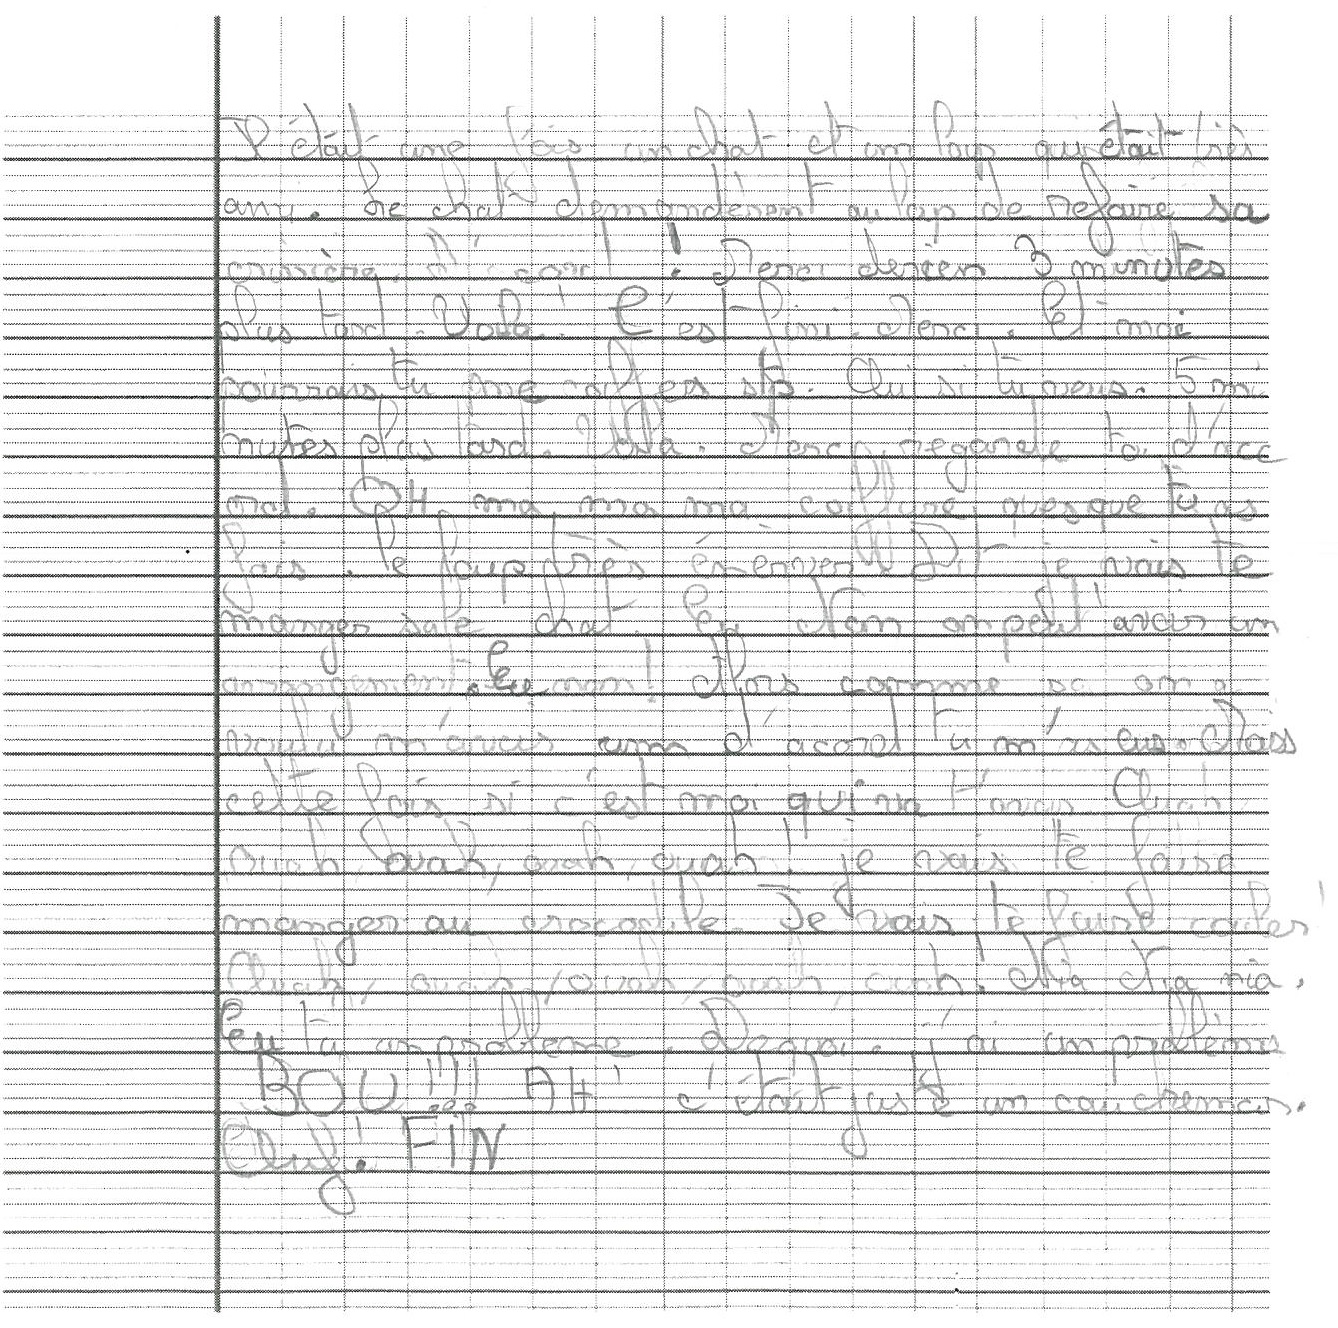 Il était une fois un chat et un loup qui était très
ami. Le chat demandèrent au loup de refaire sa
crinière. D'acord ! Merci derien 3 minutes
plus tard. Voila ! C'est fini. Merci. Et moi
pourrais tu me coiffes stp. Oui si tu veus. 5 mi
nutes plus tard. Voila. Merci, regarde toi d'acc
ord. OH ma ma ma coiffure, quesque tu as
fais. le loup très énerver Dit je vais te
manger sale chat. Eu Non on peut avoir un
arrangement. Eu non ! Alors comme sa on a
voulu m'avoir um d'acord tu m'as eus. Mais
cette fois si c'est moi qui va t'avoir Ouah
ouah, ouah, ouah, ouah ! je vais te faire
manger au crocodile. Je vais te faire couler !
Ouah, ouah, ouah, ouah, ouah ! Nia Nia nia.
Eu tu un problème. Dequoi. j'ai un problèmes
BOU !!! AH ! c'était juste un cauchemar.
Ouf ! FIN